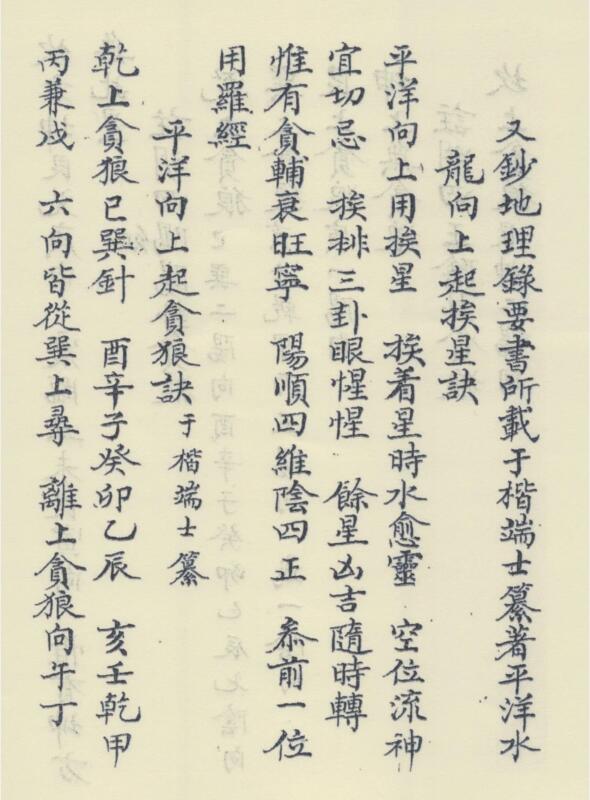 又鈔地理錄要書所載于楷端士纂著平洋水
龍向上起挨星訣
平洋向上用挨星 挨着星時水愈靈 空位流神
宜切忌 挨排三卦眼惺惺 餘星凶吉隨時轉
惟有貪輔衰旺寧 陽順四維陰四正 忝前一位
用羅經
平洋向上起貪狼訣于楷端士纂
乾上貪狼巳巽針 酉辛子癸卯乙辰 亥壬乾甲
丙兼戍 六向皆從巽上尋 離上貪狼向午丁